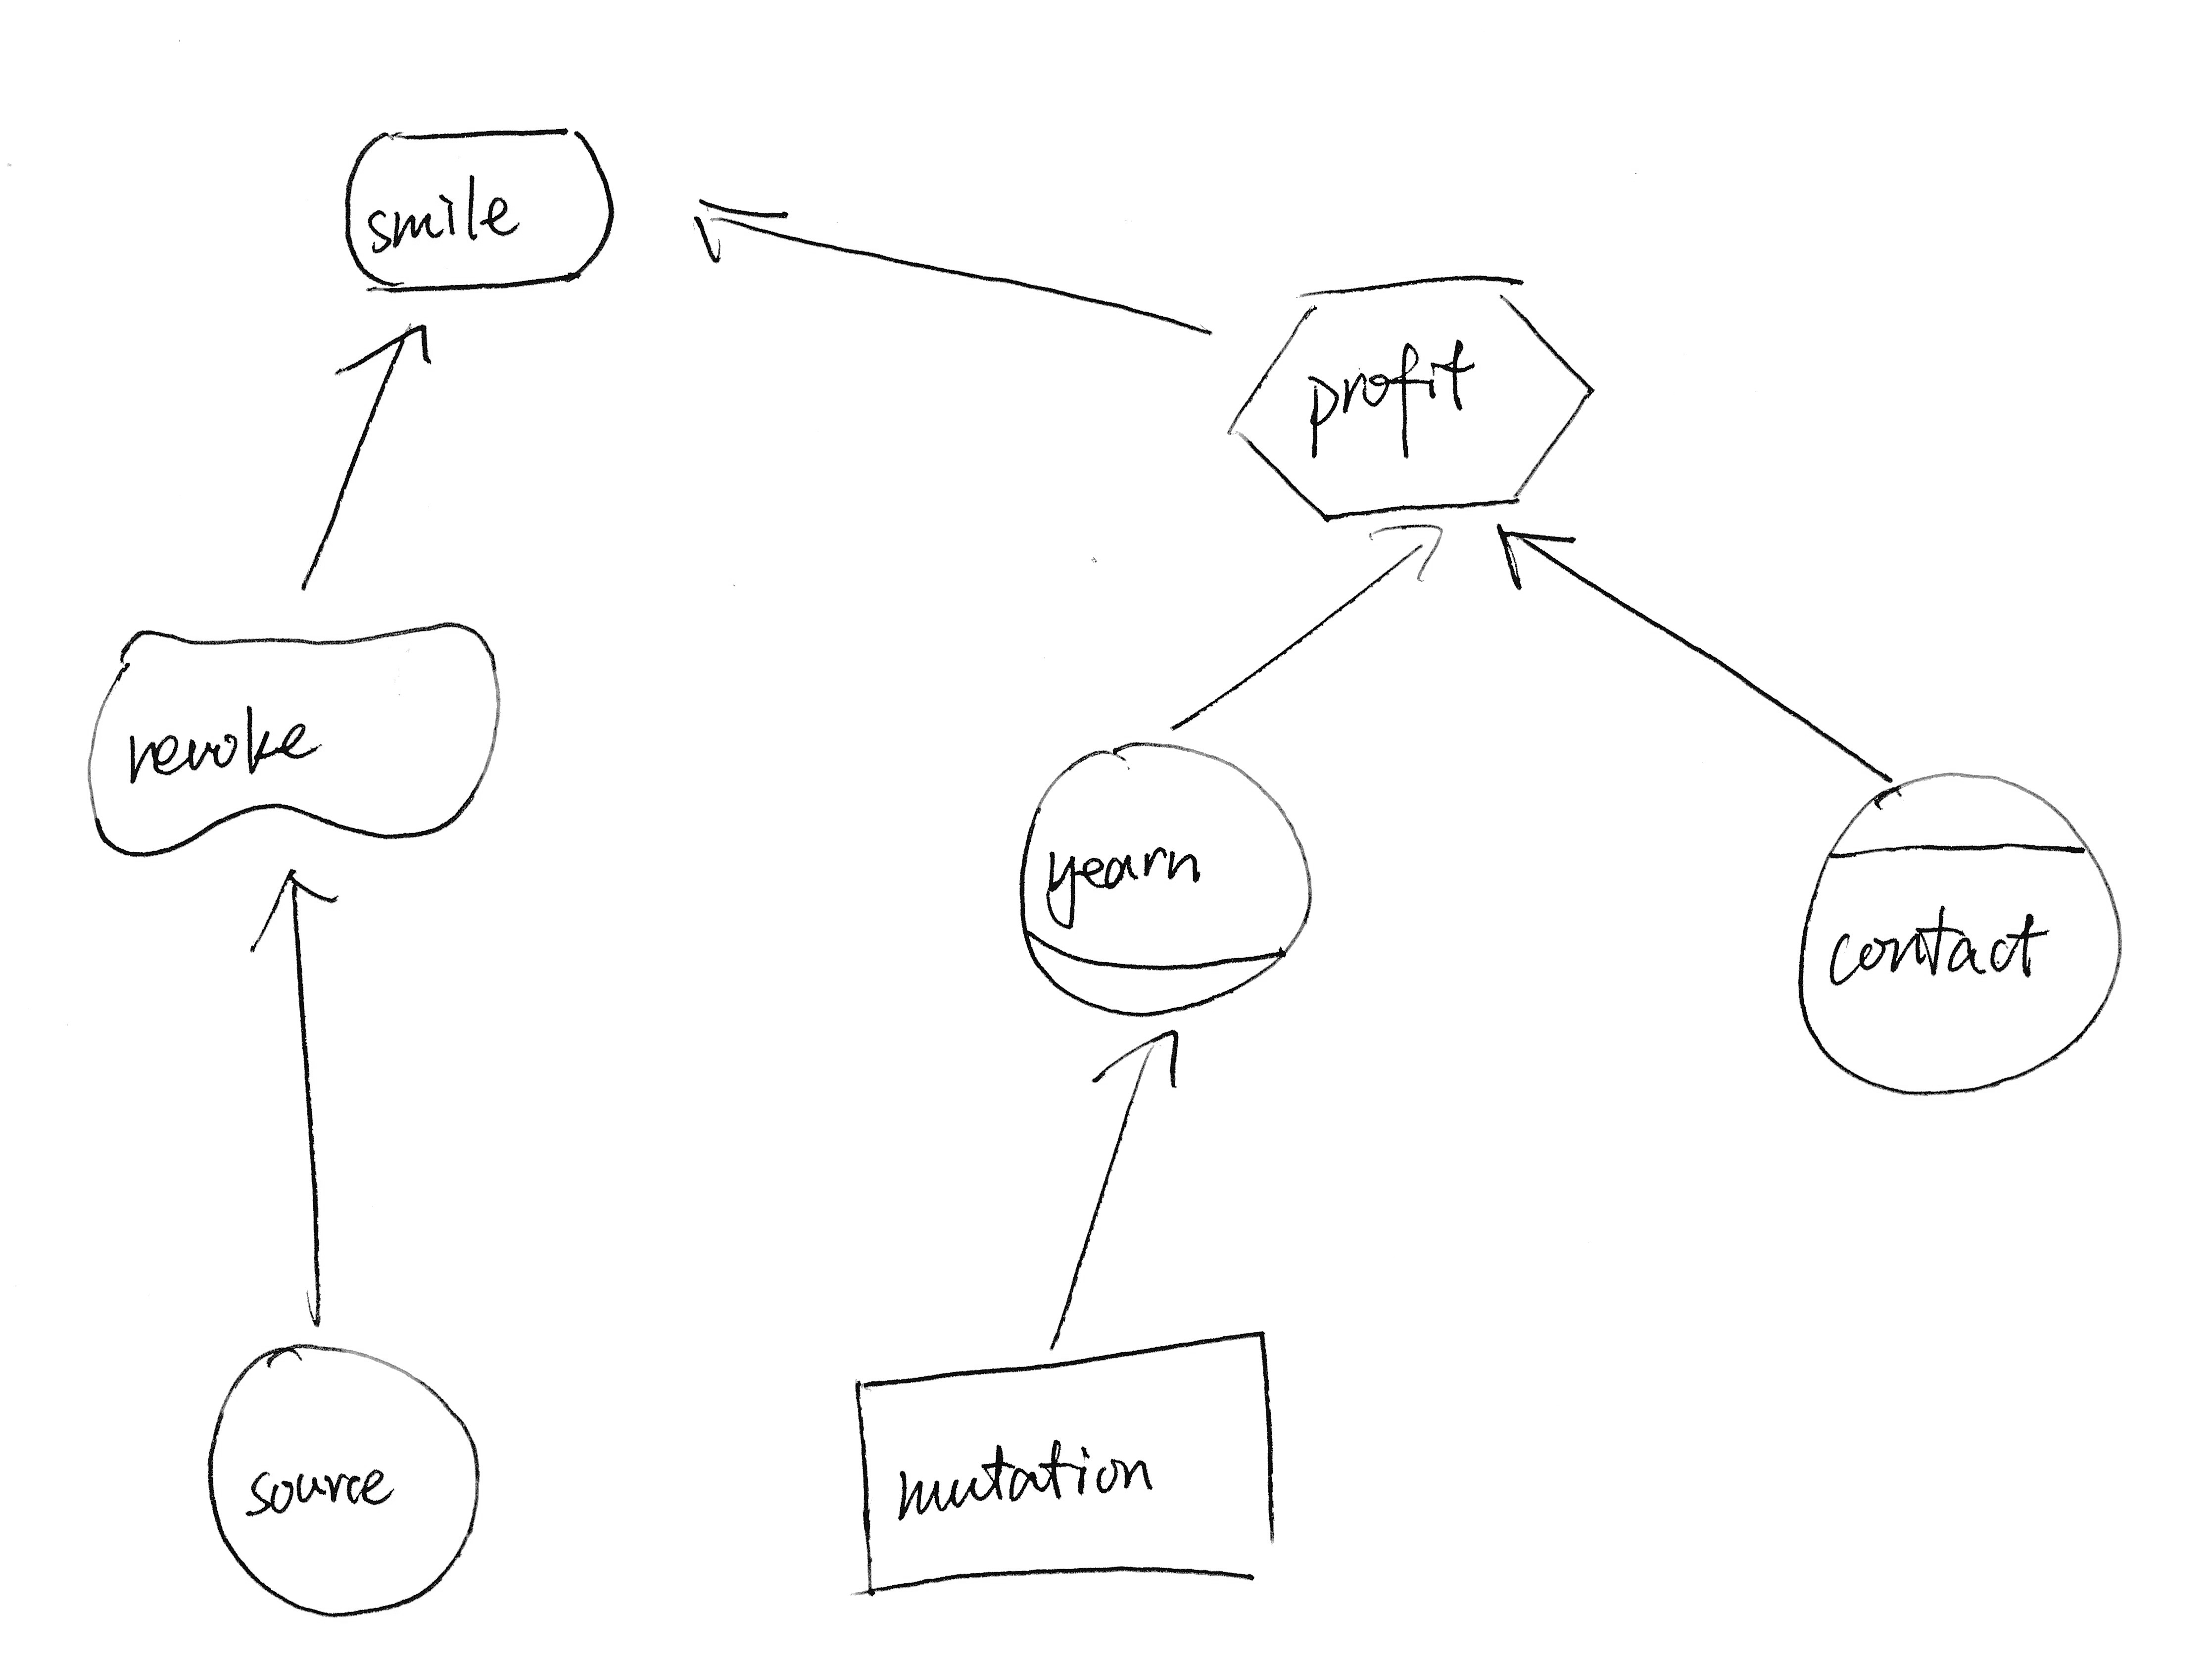 smile
profit
revoke
yearn
contact
source
mutation